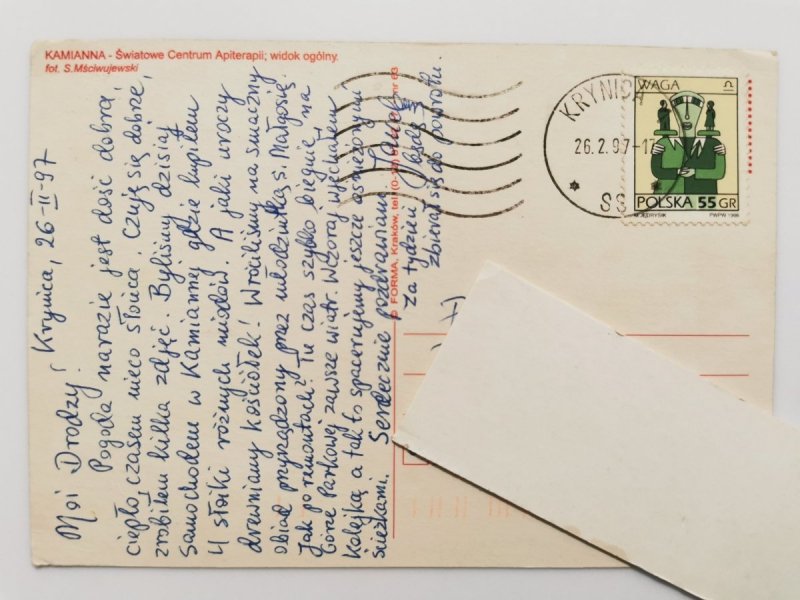 KAMIANNA - Światowe Centrum Apiterapii; widok ogólny.
fot. S.Mściwujewski
Krynica, 26-II-97
Moi Drodzy!
Pogoda narazie jest dość dobra,
ciepło, czasem nieco słońca. Czuję się dobrze,
zrobiłem kilka zdjęć. Byliśmy dzisiaj
samochodem w Kamiannej gdzie kupiłem
4 słoiki różnych miodów. A jaki uroczy
drewniany kościółek! Wróciliśmy na smaczny
obiad przyrządzony przez młodziutką s. Małgosię.
Jak po remontach? Tu czas szybko biegnie, na
Górze Parkowej zawsze wiatr. Wczoraj wjechałem
kolejką, a tak to spacerujemy jeszcze ośnieżonymi
ścieżkami. Serdecznie pozdrawiam
Za tydzień będę
zbierał się do powrotu.
© FORMA, Kraków, tel. (0-12)
nr 63
KRYNICA
26.2.97-17
* SS
WAGA ♎
POLSKA 55 GR
M. JĘDRYSIK PWPW 1996